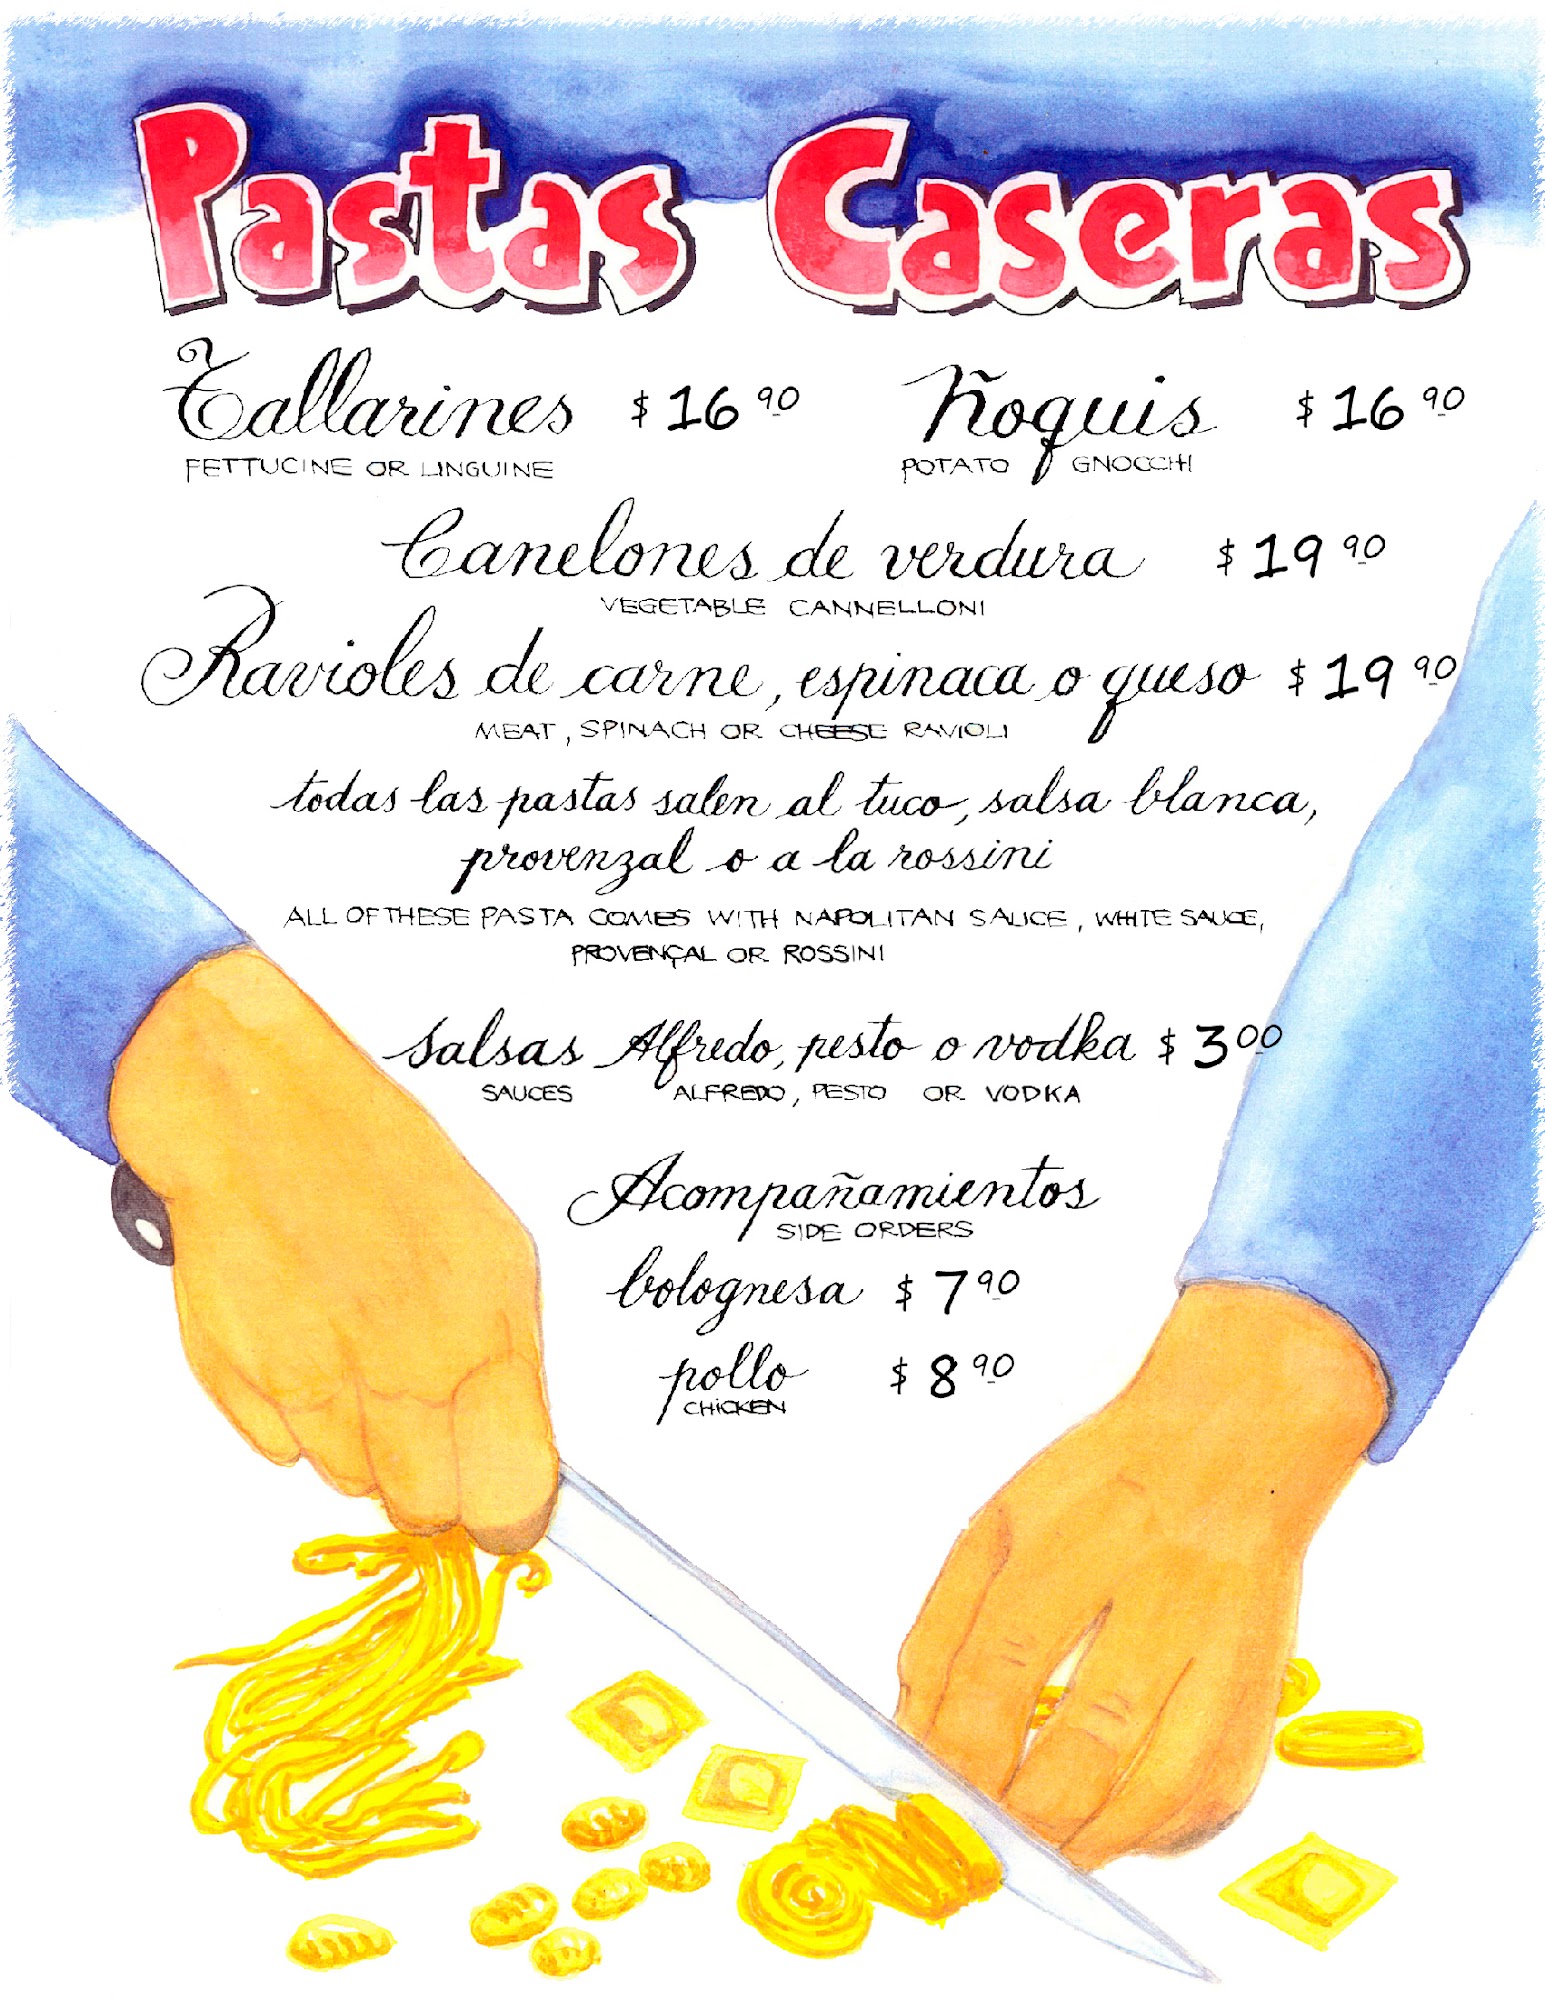 Pastas Caseras
Tallarines $16 90 Ñoquis $16 90
FETTUCINE OR LINGUINE POTATO GNOCCHI
Canelones de verdura $19 90
VEGETABLE CANNELLONI
Ravioles de carne, espinaca o queso $19 90
MEAT, SPINACH OR CHEESE RAVIOLI
todas las pastas salen al tuco, salsa blanca,
provenzal o a la rossini
ALL OF THESE PASTA COMES WITH NAPOLITAN SAUCE, WHITE SAUCE,
PROVENÇAL OR ROSSINI
salsas Alfredo, pesto o vodka $3 00
SAUCES ALFREDO, PESTO OR VODKA
Acompañamientos
SIDE ORDERS
bolognesa $7 90
pollo $8 90
CHICKEN